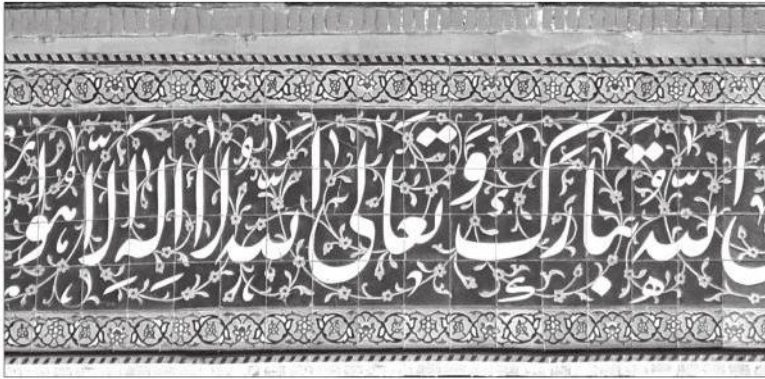 الله تبارك و تعالى الله لا اله الا هو